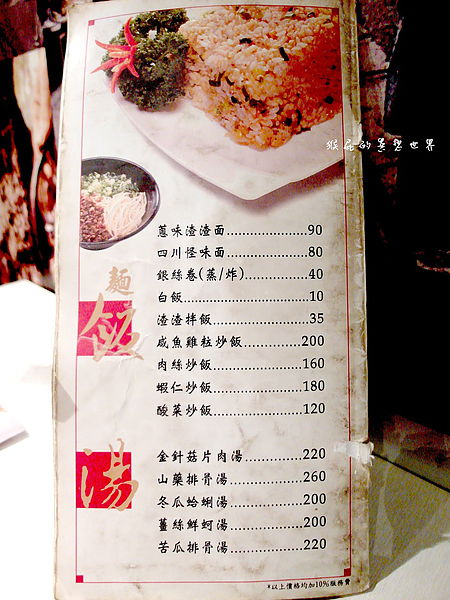 猴屁的異想世界
麵
飯
蔥味渣渣面..................90
四川怪味面..................80
銀絲卷(蒸/炸)..............40
白飯..............................10
渣渣拌飯......................35
咸魚雞粒炒飯............200
肉絲炒飯....................160
蝦仁炒飯....................180
酸菜炒飯....................120
湯
金針菇片肉湯............220
山藥排骨湯................260
冬瓜蛤蜊湯................200
薑絲鮮蚵湯................200
苦瓜排骨湯................220
*以上價格均加10%服務費